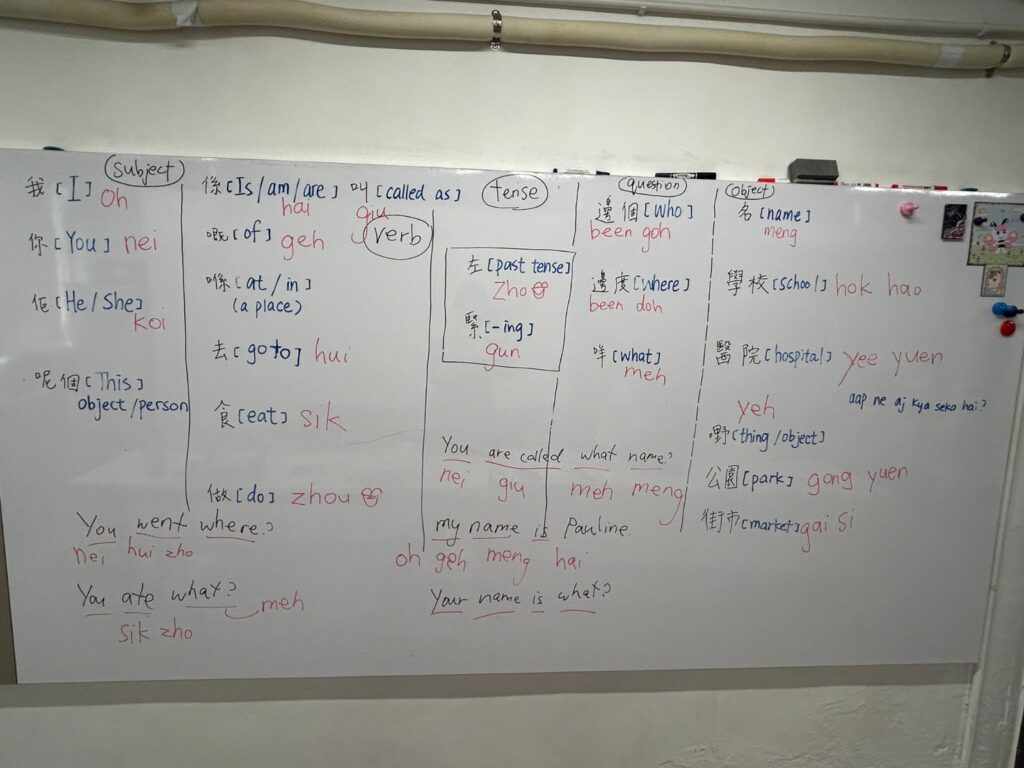 Subject
我 [I] Oh
你 [You] nei
佢 [He/She]
koi
呢個 [This]
object/person
係 [Is/am/are] 叫 [called as]
hai giu
Verb
嘅 [of] geh
喺 [at/in]
(a place)
去 [go to] hui
食 [eat] sik
做 [do] zhou
tense
左 [past tense]
Zho
緊 [-ing]
gun
question
邊個 [Who]
been goh
邊度 [where]
been doh
咩 [what]
meh
object
名 [name]
meng
學校 [school] hok hao
醫院 [hospital] yee yuen
aap ne aj kya seko hai?
yeh
嘢 [thing/object]
公園 [park] gong yuen
街市 [market] gai si
You went where?
nei hui zho
You ate what?
meh
sik zho
You are called what name?
nei giu meh meng
my name is Pauline.
oh geh meng hai
Your name is what?